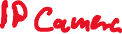 IP Camera